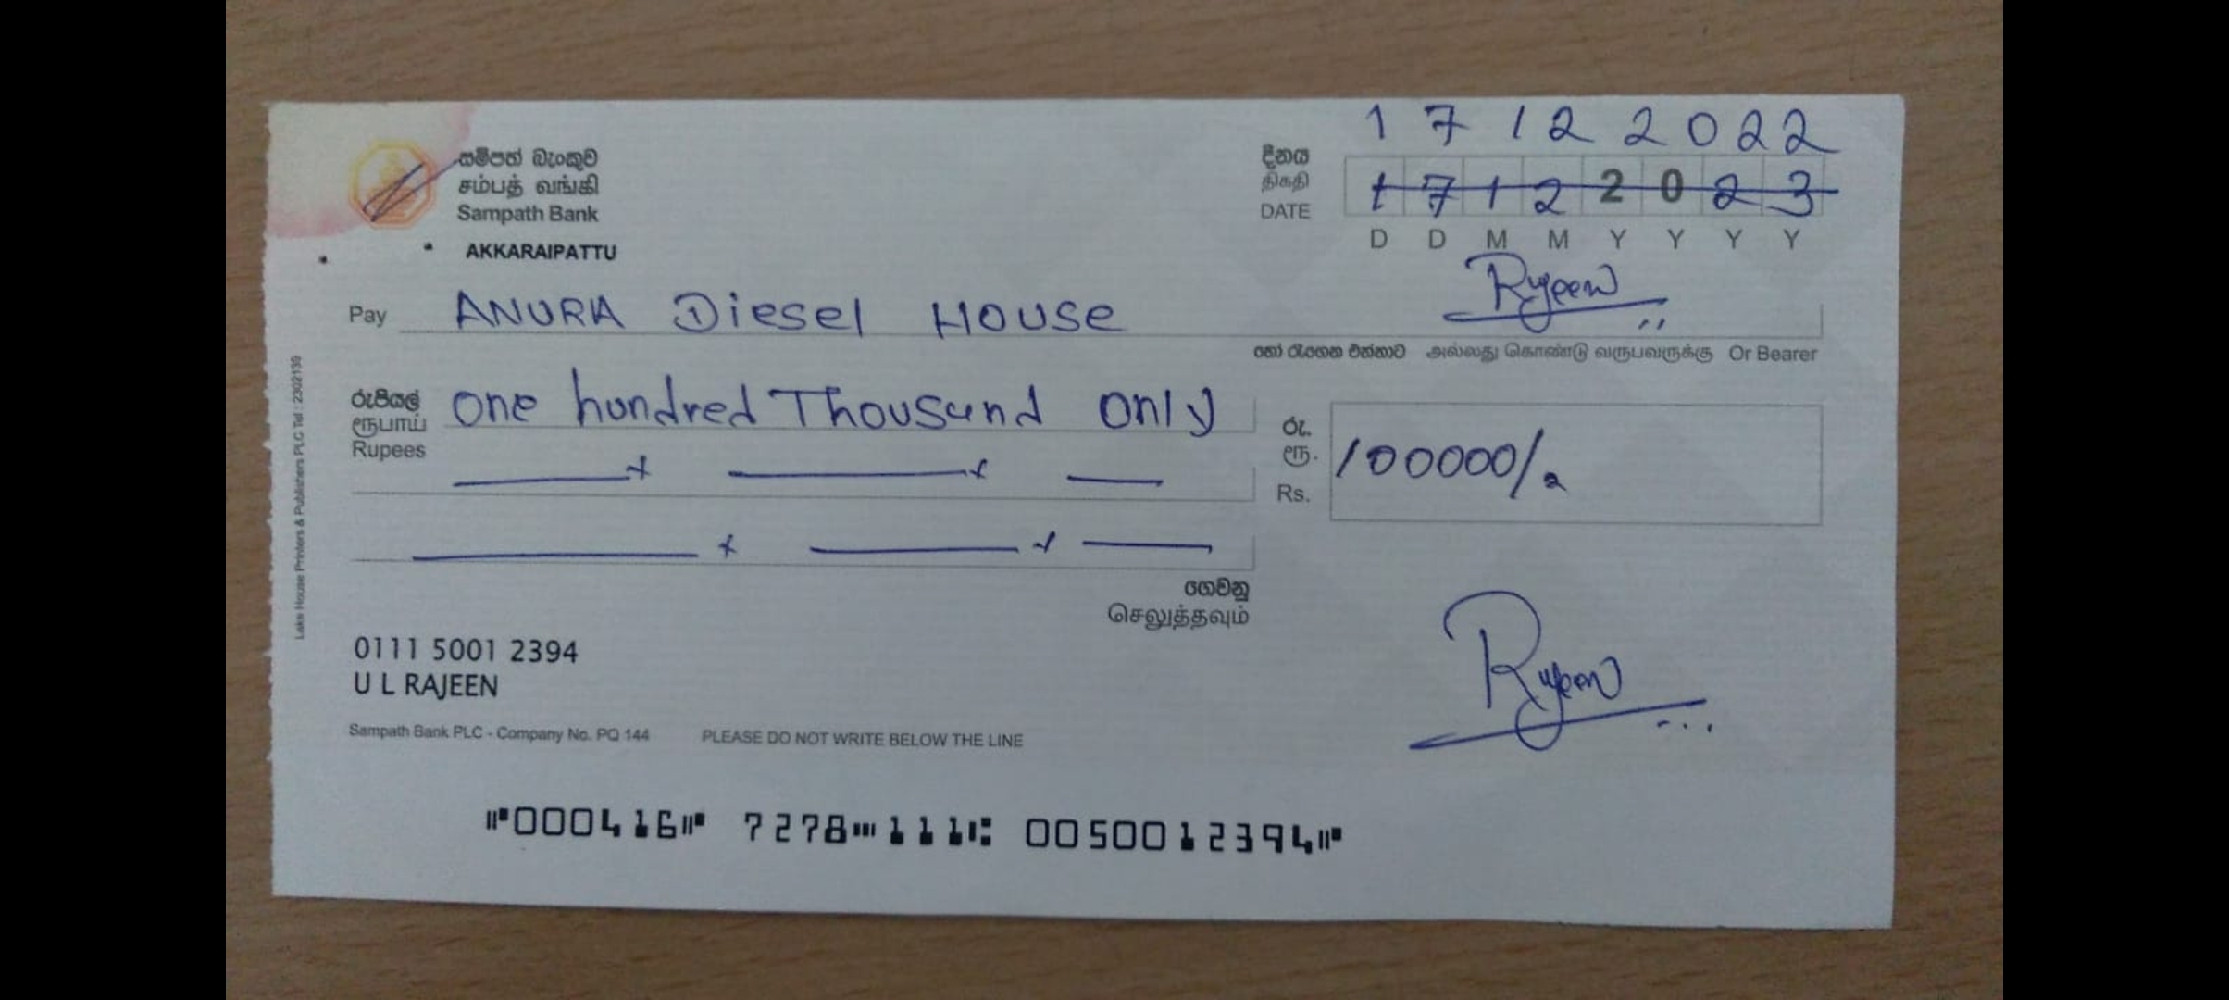 1 7 1 2 2 0 2 2
සම්පත් බැංකුව
சம்பத் வங்கி
Sampath Bank
AKKARAIPATTU
දිනය
திகதி
DATE
1 7 1 2 2 0 2 3
D D M M Y Y Y Y
Rajeen
Pay ANURA Diesel House
හෝ රැගෙන එන්නාට அல்லது கொண்டு வருபவருக்கு Or Bearer
රුපියල්
ரூபாய்
Rupees
one hundred Thousand only
රු.
ரூ.
Rs.
100000/-
ගෙවනු
செலுத்தவும்
0111 5001 2394
U L RAJEEN
Rajeen
Sampath Bank PLC - Company No. PQ 144 PLEASE DO NOT WRITE BELOW THE LINE
⑈000416⑈ 7278⑉111⑆ 0050012394⑈
Lake House Printers & Publishers PLC Tel : 2302139